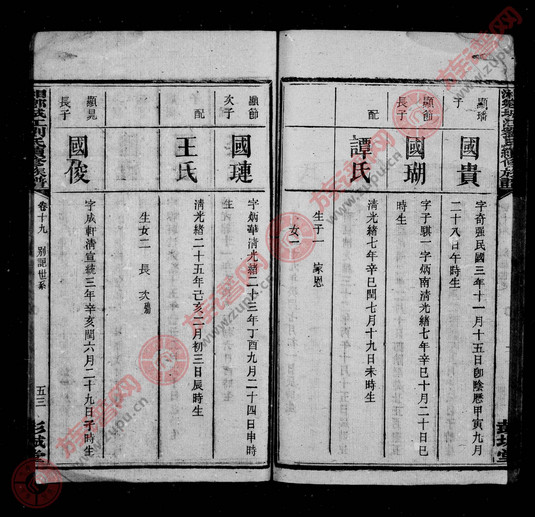 顯璘
子
國貴
字奇强民國三年十一月十五日卽陰歷甲寅九月
二十八日午時生
顯節
長子
國瑚
字子騏一字炳南淸光緒七年辛巳十月二十日巳
時生
配
譚氏
淸光緒七年辛巳閏七月十九日未時生
生子一 家恩
女一
顯節
次子
國璉
字炳華淸光緒二十三年丁酉九月二十四日申時
生
配
王氏
淸光緒二十五年己亥二月初三日辰時生
生女二 長 次
顯晃
長子
國俊
字成軒淸宣統三年辛亥閏六月二十九日子時生
卷十九 別記世系
五三
彭城堂
族譜网
www.zupu.cn